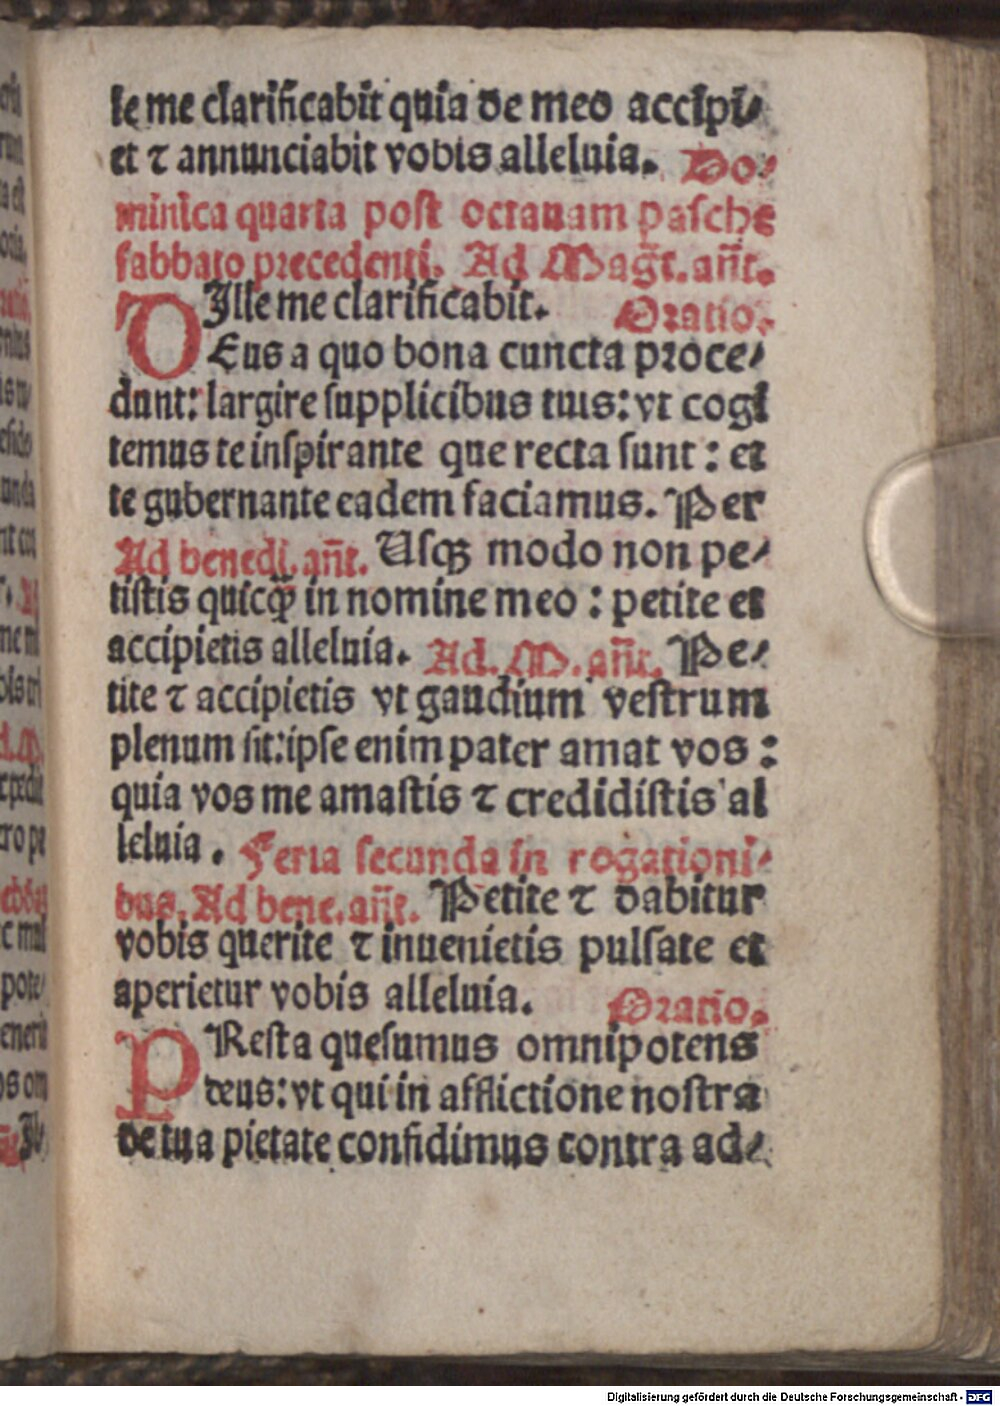 le me clarificabit quia de meo accipi⸗
et ⁊ annunciabit vobis alleluia. Do⸗
minica quarta post octauam pasche
sabbato precedenti. Ad Magr̄. an̄t.
Ille me clarificabit. Oratio.
DEus a quo bona cuncta proce⸗
dunt: largire supplicibus tuis: vt cogi
temus te inspirante que recta sunt : et
te gubernante eadem faciamus. Per
Ad benedi. an̄t. Usqꝫ modo non pe⸗
tistis quicq̄ in nomine meo : petite et
accipietis alleluia. Ad. M. an̄t. Pe⸗
tite ⁊ accipietis vt gaudium vestrum
plenum sit: ipse enim pater amat vos :
quia vos me amastis ⁊ credidistis al
leluia . Feria secunda in rogationi⸗
bus. Ad bene. an̄t. Petite ⁊ dabitur
vobis querite ⁊ inuenietis pulsate et
aperietur vobis alleluia. Oratio.
PResta quesumus omnipotens
deus: vt qui in afflictione nostra
de tua pietate confidimus contra ad⸗
Digitalisierung gefördert durch die Deutsche Forschungsgemeinschaft - DFG